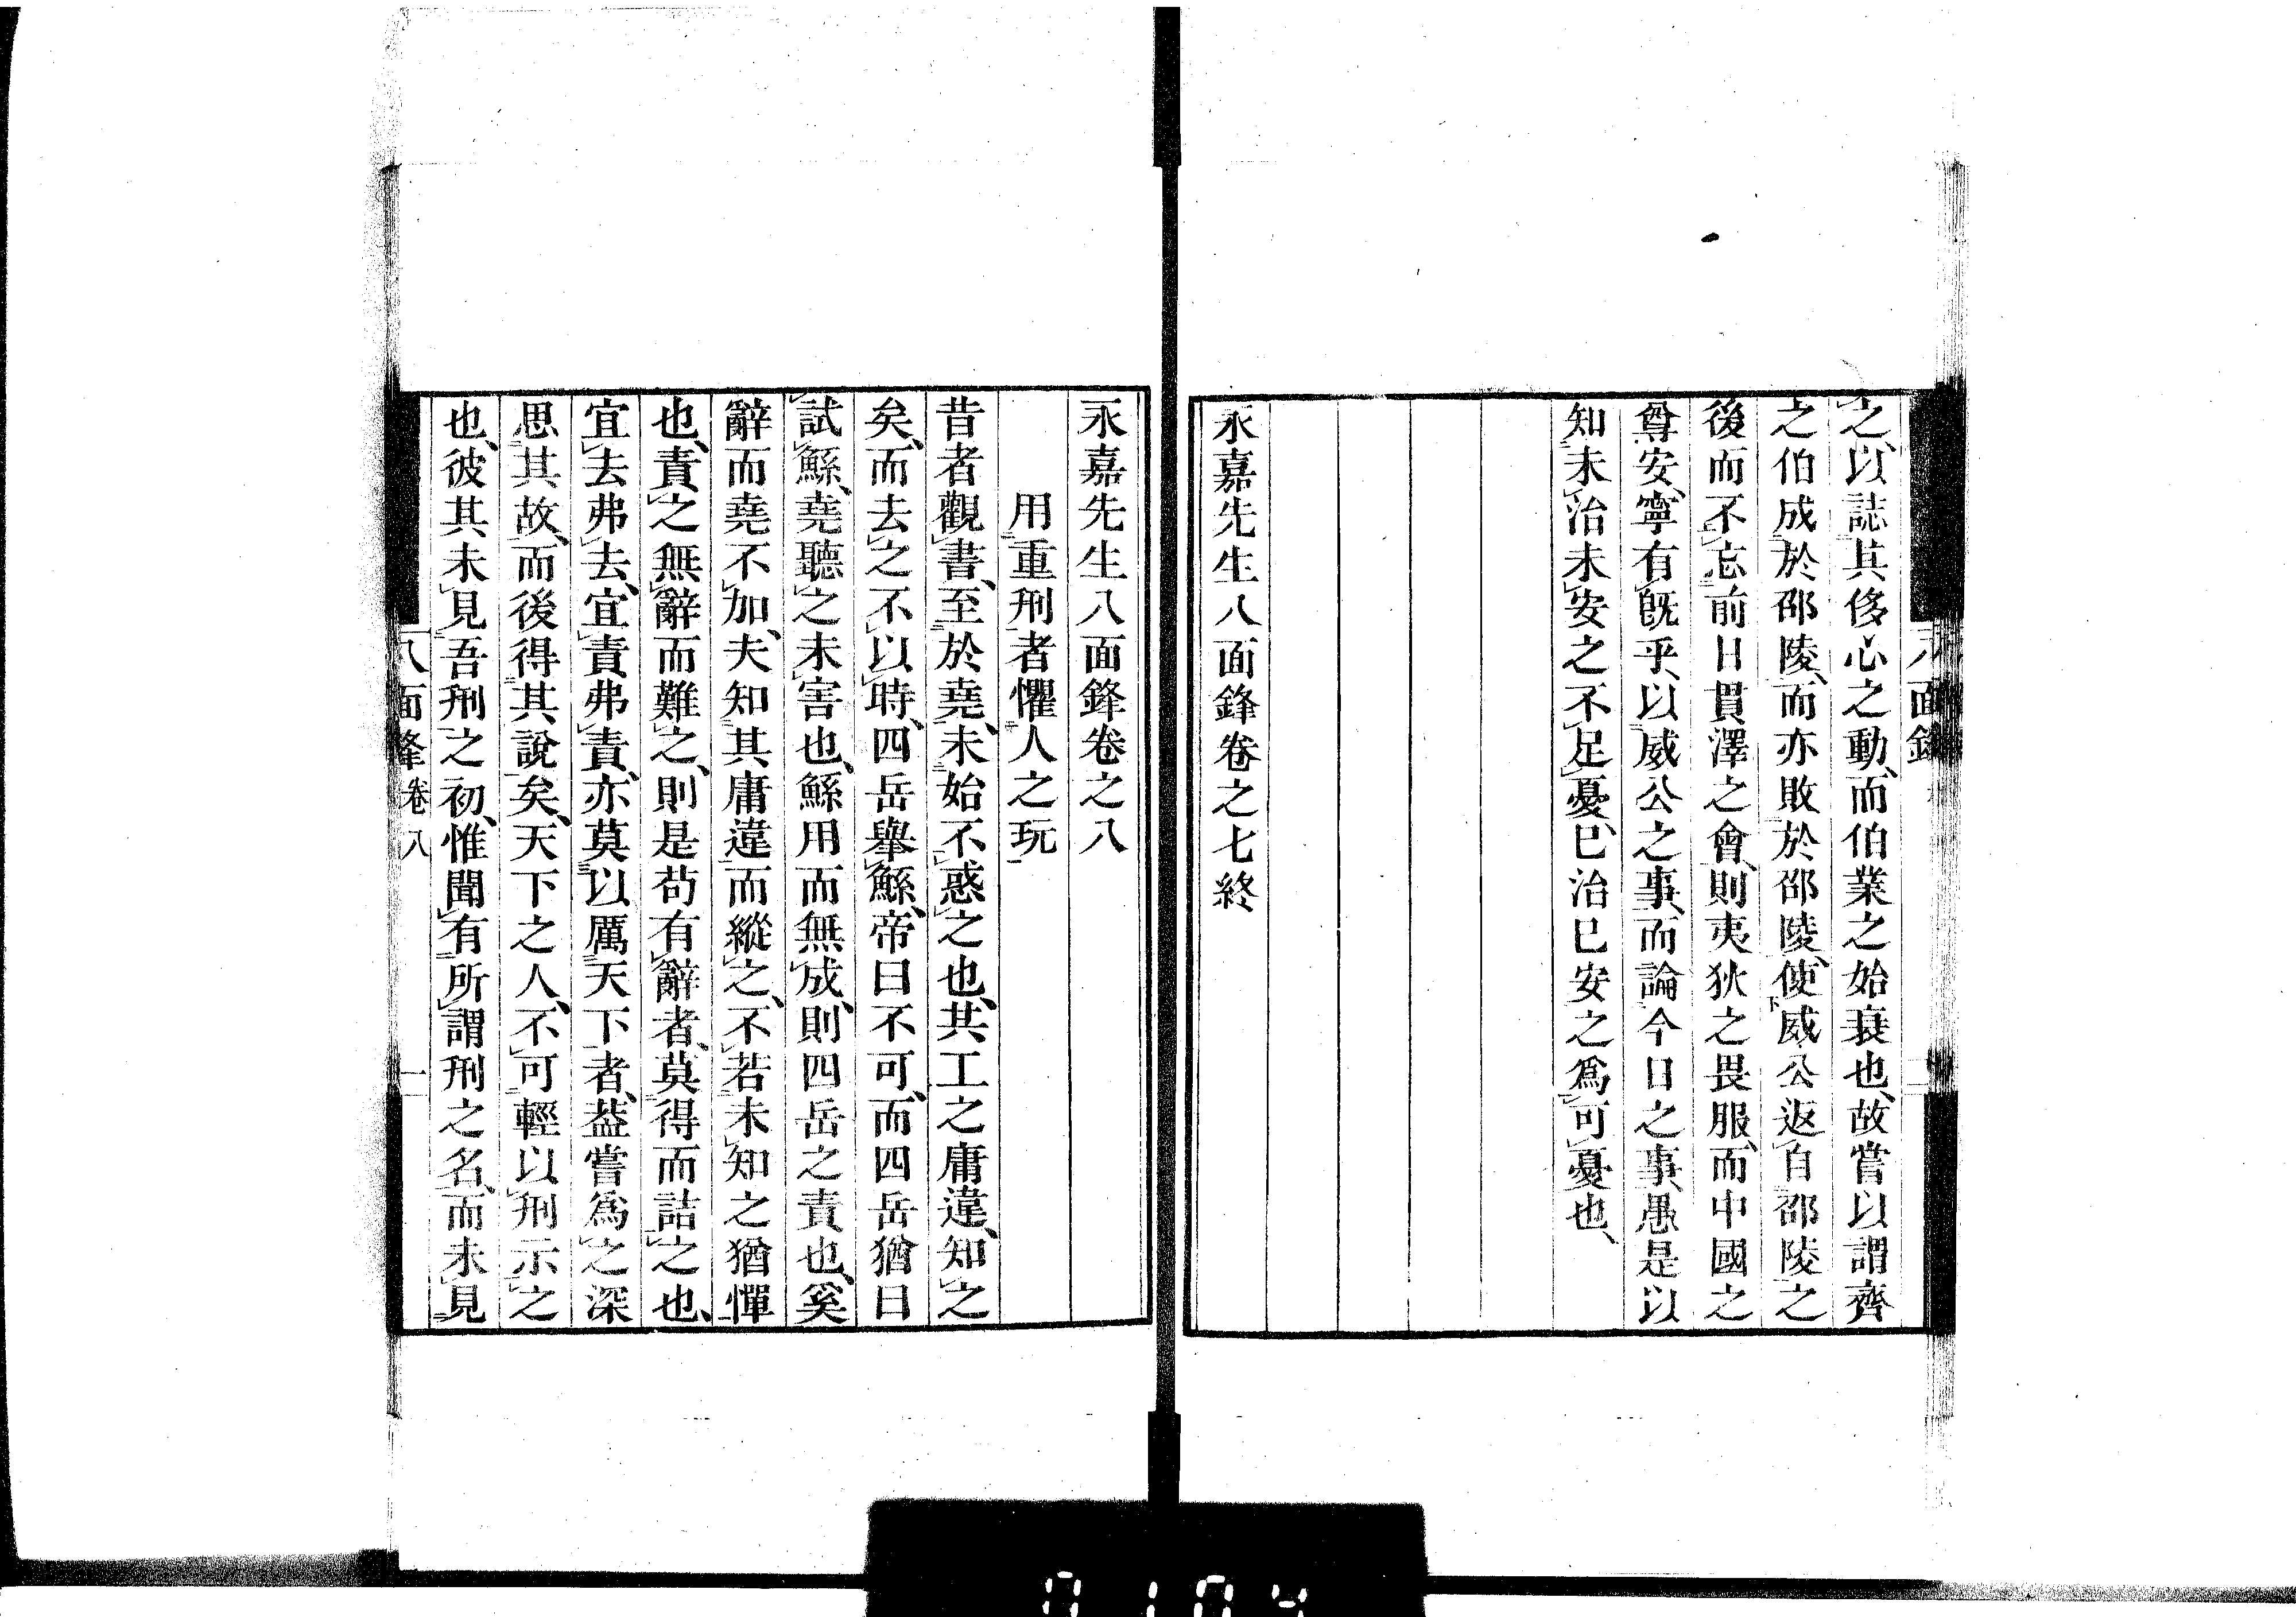 之、以誌其侈心之動、而伯業之始衰也、故嘗以謂齊
之伯成於邵陵、而亦敗於邵陵、使威公返自邵陵之
後而不忘前日貫澤之會、則夷狄之畏服、而中國之
尊安、寧有既乎、以威公之事、而論今日之事、愚是以
知未治未安之不足憂、巳治巳安之爲可憂也、
永嘉先生八面鋒卷之七終
永嘉先生八面鋒卷之八
用重刑者懼人之玩
昔者觀書、至於堯、未始不惑之也、共工之庸違、知之
矣、而去之不以時、四岳舉鯀、帝曰不可、而四岳猶曰
試鯀、堯聽之未害也、鯀用而無成、則四岳之責也、奚
辭而堯不加、夫知其庸違而縱之、不若未知之猶憚
也、責之無辭而難之、則是苟有辭者、莫得而詰之也、
宜去弗去、宜責弗責、亦莫以厲天下者、葢嘗爲之深
思其故、而後得其說矣、天下之人、不可輕以刑示之
也、彼其未見吾刑之初、惟聞有所謂刑之名、而未見
八面鋒 卷八 一
0104